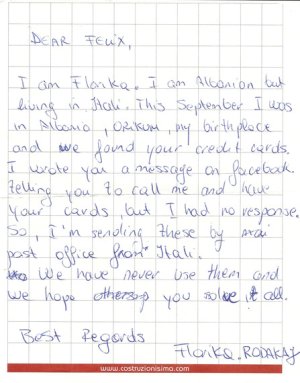 DEAR FELIX,
I am Florika. I am Albanian but
living in Itali. This September I was
in Albania, ORIKUM, my birthplace
and we found your credit cards.
I wrote you a message on facebook
telling you to call me and have
your cards, but I had no response.
So, I'm sending these by
post office from Itali.
We have never use them and
we hope you solve it all.
Best Regards
Florika. RODAKAJ
www.costruzionisimo.com